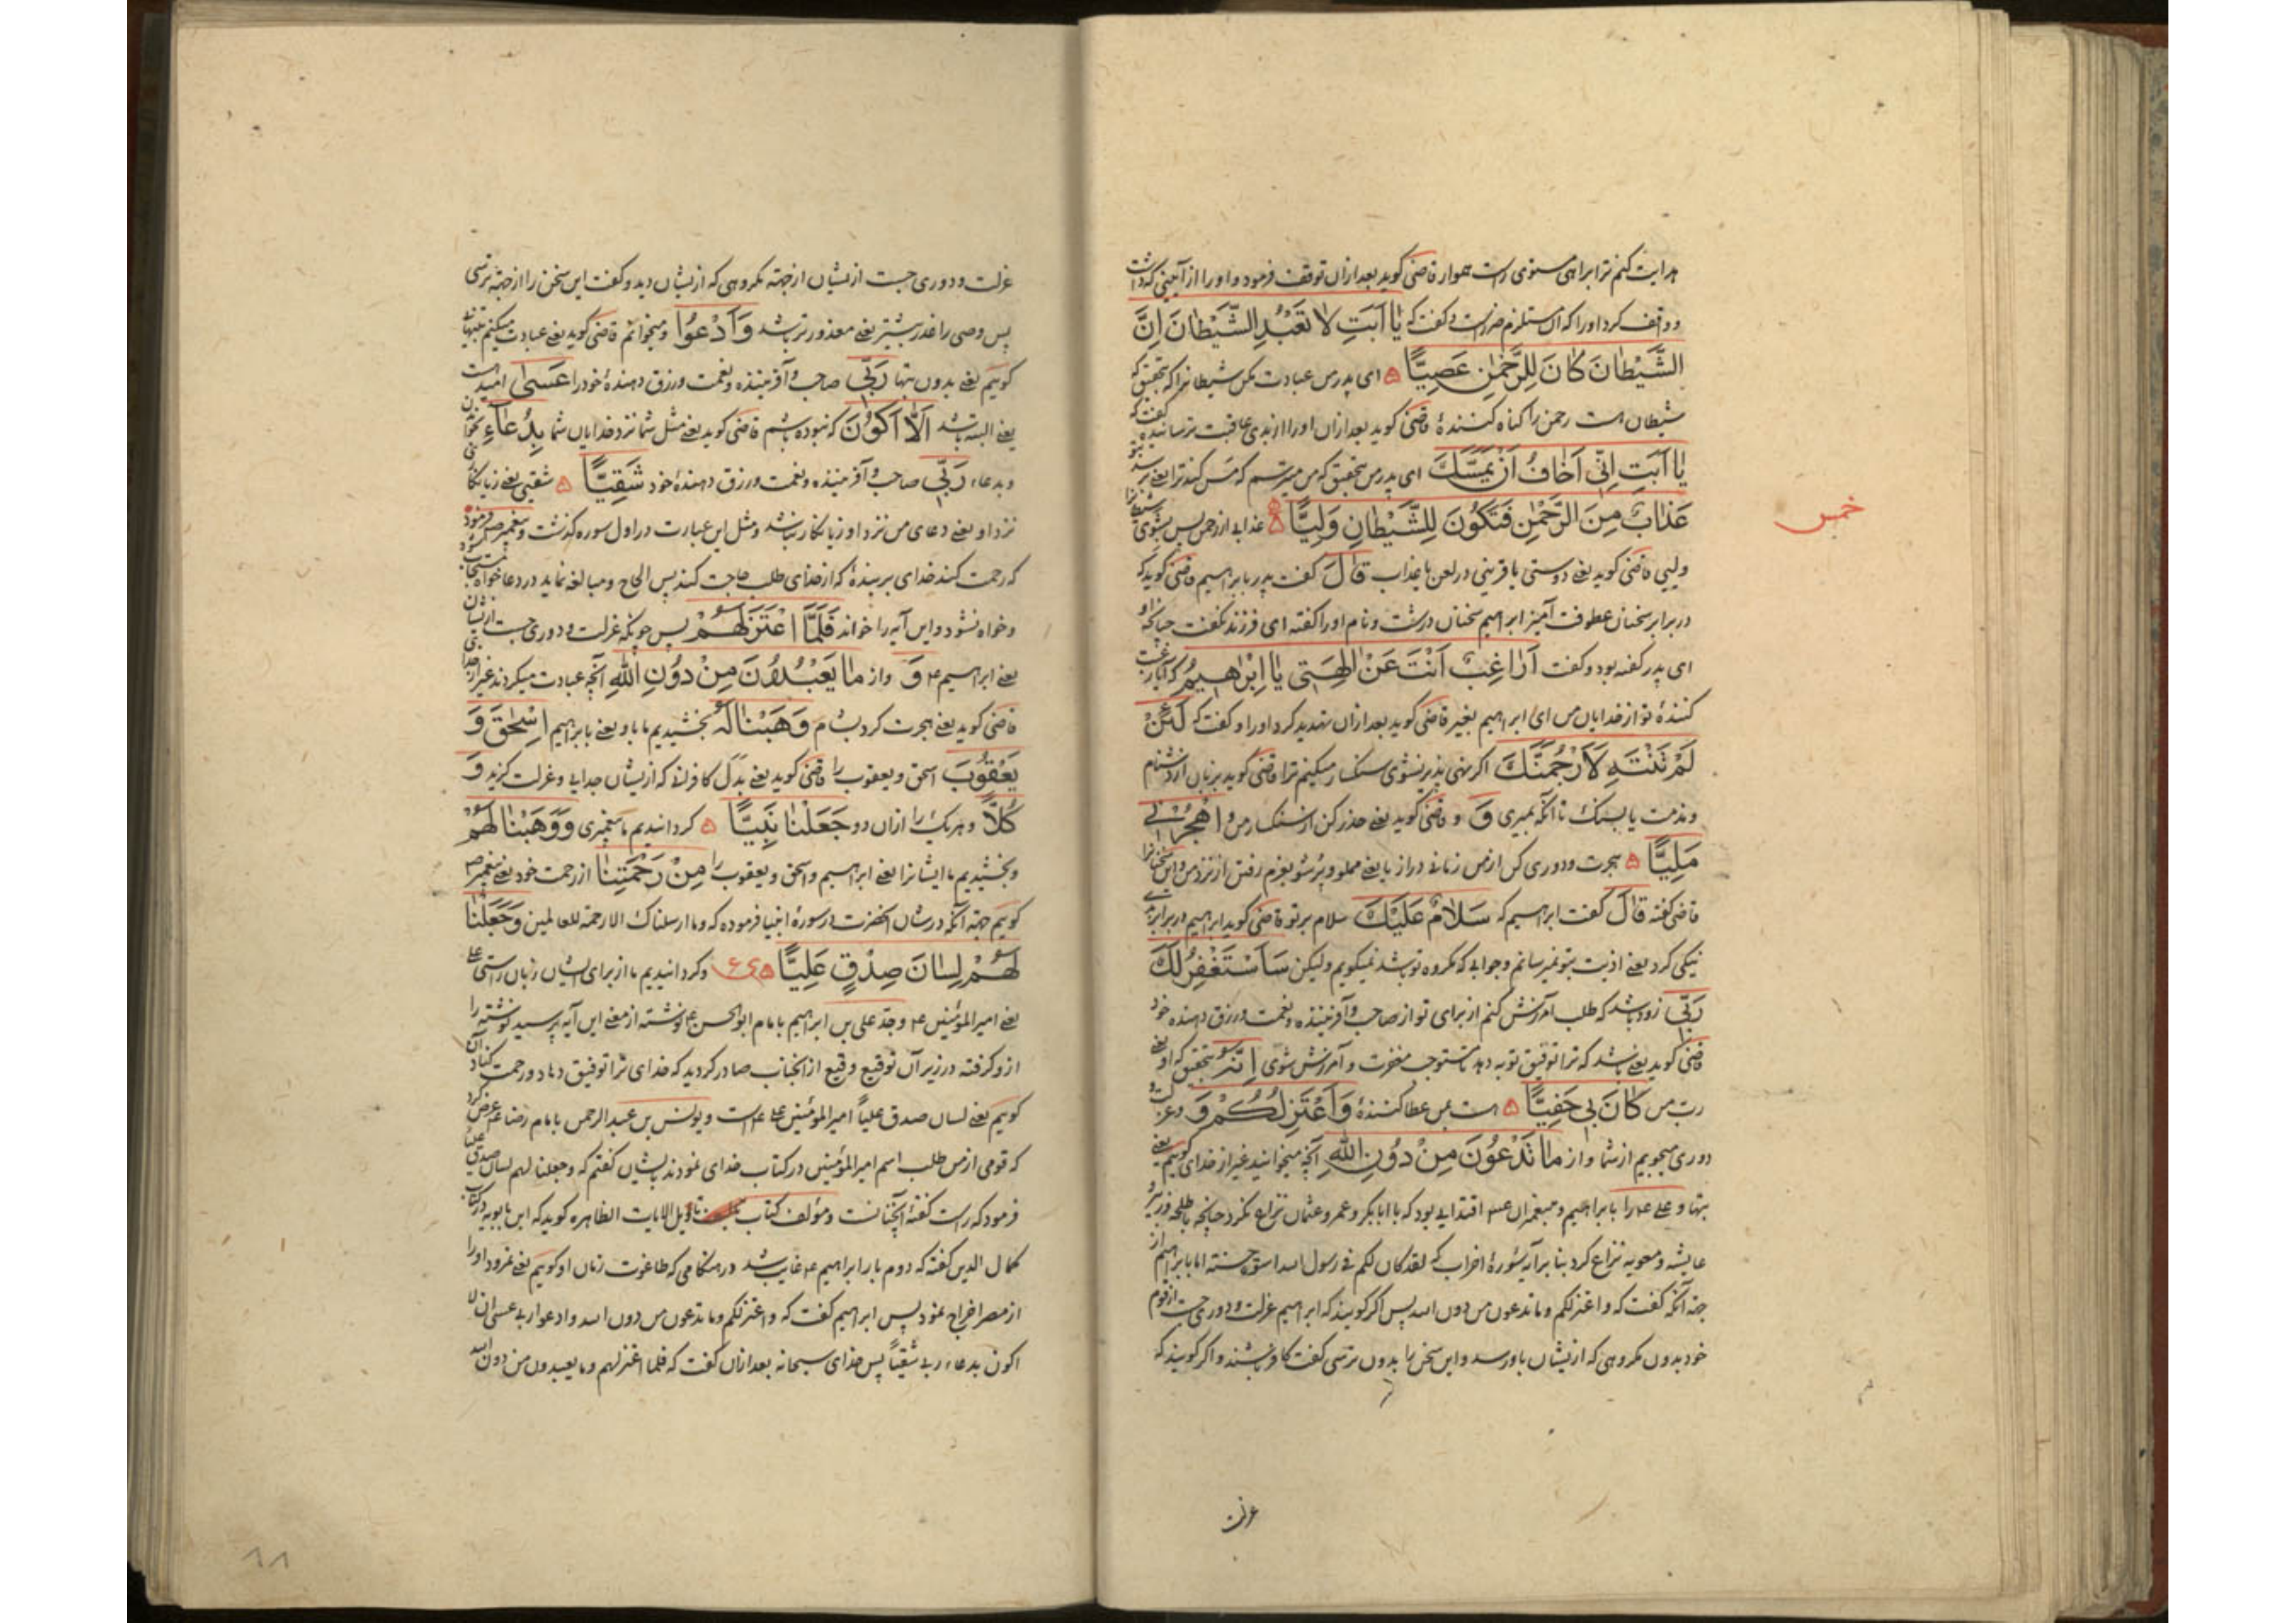 هدایت کنم ترا براهی مستوی راست هموار قاضی گوید بعد ازان توقف فرمود و اورا از آیینی که داشت
و واقف کرد اورا که آن مستلزم ضررست و گفت که یَا اَبَتِ لَا تَعْبُدِ الشَّیْطَانَ اِنَّ
الشَّیْطَانَ کَانَ لِلرَّحْمٰنِ عَصِیًّا ای پدر من عبادت مکن شیطانرا که بتحقیق که
شیطان است رحمن را گناه کننده قاضی گوید بعد ازان اورا از بدی عاقبت ترسانیده گفت که
یَا اَبَتِ اِنِّی اَخَافُ اَنْ یَمَسَّکَ ای پدر من بتحقیق که من میترسم که مس کند ترا یعنی برسد بتو
عَذَابٌ مِنَ الرَّحْمٰنِ فَتَکُونَ لِلشَّیْطَانِ وَلِیًّا عذابی از رحمن پس بشوی شیطانرا
خمس
ولیی قاضی گوید یعنی دوستی یا قرینی در لعن یا عذاب قَالَ گفت پدر بابراهیم قاضی گوید که
در برابر سخنان عطوفت آمیز ابراهیم سخنان درشت و نام اورا گفته ای فرزند نگفت چنانکه او
ای پدر گفته بود و گفت اَرَاغِبٌ اَنْتَ عَنْ اٰلِهَتِی یَا اِبْرٰهِیمُ که آیا رغبت
کننده تو از خدایان من ای ابراهیم بغیر قاضی گوید بعد ازان تهدید کرد اورا و گفت که لَئِنْ
لَمْ تَنْتَهِ لَاَرْجُمَنَّکَ اگر نهی پذیر نشوی سنگسار میکنم ترا قاضی گوید بزبان از دشنام
و مذمت یا بسنگ تا آنکه بمیری وَ و قاضی گوید یعنی حذر کن از سنگسار من و اهْجُرْنِی
مَلِیًّا هجرت و دوری کن از من زمانی دراز یا یعنی مملو و پر شو بعزم رفتن از نزد من و این سخنانرا
قاضی گفته قَالَ گفت ابراهیم که سَلَامٌ عَلَیْکَ سلام بر تو قاضی گوید ابراهیم در برابر بدی
نیکی کرد یعنی اذیت بتو نمیرسانم و جوابی که مکروه تو باشد نمیگویم ولیکن سَاَسْتَغْفِرُ لَکَ
رَبِّی زود باشد که طلب آمرزش کنم از برای تو از صاحب و آفریننده و نعمت و رزق دهنده خود
قاضی گوید یعنی باشد که ترا توفیق توبه دهد تا مستوجب مغفرت و آمرزش شوی اِنَّهُ بتحقیق که او یعنی
رب من کَانَ بِی حَفِیًّا است بمن عطا کننده وَاَعْتَزِلُکُمْ وَ و عزلت و
دوری میجویم از شما و از مَا تَدْعُونَ مِنْ دُونِ اللّٰهِ آنچه میخوانید غیر از خدای گویم یعنی
بتها و علی ع را بابراهیم و پیغمبران ع اقتدایی بود که با ابابکر و عمر و عثمان نزاع نکرد چنانچه با طلحه و زبیر و
عایشه و معویه نزاع کرد بنا بر آیه سوره احزاب که لقد کان لکم فی رسول الله اسوة حسنة اما بابراهیم از
جهة آنکه گفت که و اعتزلکم وما تدعون من دون الله پس اگر گویند که ابراهیم عزلت و دوری جست از قوم
خود بدون مکروهی که ازیشان باو رسد و این سخن را بدون ترسی گفت کافر باشند و اگر گویند که
عزلت
عزلت و دوری جست ازیشان از جهة مکروهی که ازیشان دید و گفت این سخن را از جهة ترسی
پس وصی را عذر بیشتر یعنی معذورتر باشد وَاَدْعُوا و میخوانم قاضی گوید یعنی عبادت میکنم بتنهائی
گویم یعنی بدون بتها رَبِّی صاحب و آفریننده و نعمت و رزق دهنده خودرا عَسٰی امیدست
یعنی البته باشد اَلَّا اَکُونَ که نبوده باشم قاضی گوید یعنی مثل شما نزد خدایان شما بِدُعَاءِ بخواندن
و بدعاء رَبِّی صاحب و آفریننده و نعمت و رزق دهنده خود شَقِیًّا شقیی یعنی زیانکار
نزد او یعنی دعای من نزد او زیانکار نباشد و مثل این عبارت در اول سوره گذشت و پیغمبر ص فرمود
که رحمت کند خدای بر بنده که از خدای طلب حاجت کند پس الحاح و مبالغه نماید در دعا خواه مستجاب شود
و خواه نشود و این آیه را خواند فَلَمَّا اعْتَزَلَهُمْ پس چونکه عزلت و دوری جست ازیشان
یعنی ابراهیم ع وَ و از مَا یَعْبُدُونَ مِنْ دُونِ اللّٰهِ آنچه عبادت میکردند غیر از خدا
قاضی گوید یعنی هجرت کرد بشام وَهَبْنَا لَهُ بخشیدیم ما باو یعنی بابراهیم اِسْحٰقَ وَ
یَعْقُوبَ اسحق و یعقوب را قاضی گوید یعنی بدل کافران که ازیشان جدایی و عزلت گزید وَ
کُلًّا و هر یک را ازان دو جَعَلْنَا نَبِیًّا گردانیدیم ما پیغمبری وَوَهَبْنَا لَهُمْ
و بخشیدیم ما ایشانرا یعنی ابراهیم و اسحق و یعقوب را مِنْ رَحْمَتِنَا از رحمت خود یعنی پیغمبر ص
گویم جهة آنکه در شان آنحضرت در سوره انبیا فرموده که وما ارسلناک الا رحمة للعالمین وَجَعَلْنَا
لَهُمْ لِسَانَ صِدْقٍ عَلِیًّا ع و گردانیدیم ما از برای ایشان زبان راستی علی
یعنی امیر المؤمنین ع و جد علی بن ابراهیم بامام ابو الحسن ع نوشته از معنی این آیه پرسید نوشته را
ازو گرفته در زیر آن توقیع وقیع از انجناب صادر گردید که خدای ترا توفیق دهاد و رحمت کناد آن
گویم یعنی لسان صدق علیاً امیر المؤمنین علی ع است و یونس بن عبد الرحمن بامام رضا ع عرض کرد
که قومی از من طلب اسم امیر المؤمنین در کتاب خدای نمودند بایشان گفتم که وجعلنا لهم لسان صدق علیا
فرمود که راست گفته آنچنانست و مؤلف کتاب تاویل الایات الظاهره گوید که ابن بابویه در کتاب
کمال الدین گفته که دوم بار ابراهیم ع غایب شد در هنگامی که طاغوت زمان او گویم یعنی نمرود اورا
از مصر اخراج نمود پس ابراهیم گفت که و اعتزلکم وما تدعون من دون الله وادعوا ربی عسی ان لا
اکون بدعاء ربی شقیاً پس خدای سبحانه بعد ازان گفت که فلما اعتزلهم وما یعبدون من دون الله